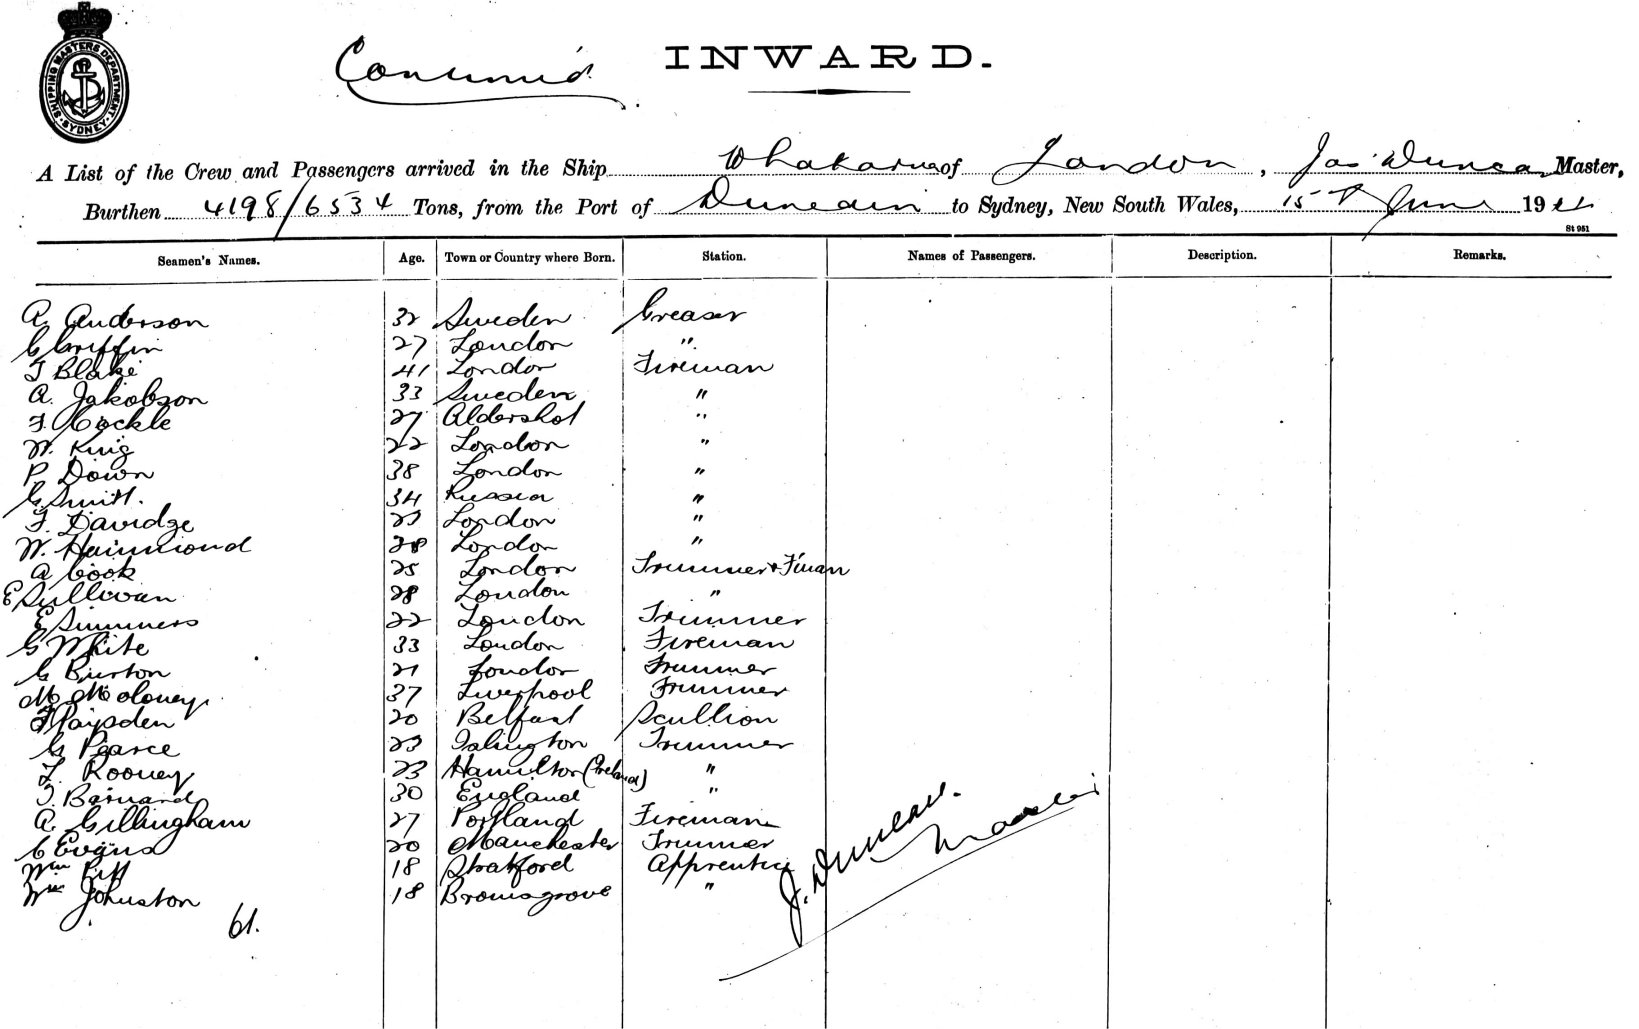 SHIPPING MASTERS DEPARTMENT SYDNEY
INWARD.
A List of the Crew and Passengers arrived in the Ship of London, Jas Duncan Master,
Burthen 4198/6534 Tons, from the Port of Dunedin to Sydney, New South Wales, 15th June 19
St 951
Seamen's Names. Age. Town or Country where Born. Station. Names of Passengers. Description. Remarks.
A. Anderson 32 Sweden Greaser
G Griffin 27 London "
T Blake 41 London Fireman
A. Jakobson 33 Sweden "
F. Cockle 27 Aldershot "
W. King 22 London "
P Down 38 London "
G Smith. 34 Russia "
F. Davidge 23 London "
W. Hammond 28 London "
A Cook 25 London Trimmer & F'man
E Sullivan 28 London "
E Simmers 22 London Trimmer
G White 33 London Fireman
G Burton 21 London Trimmer
M. Moloney 37 Liverpool Trimmer
20 Belfast Scullion
G Pearce 23 Islington Trimmer
Rooney 23 Hamilton (Ireland) "
Barnard 30 England "
A. Gillingham 27 Portland Fireman
C Evans 20 Manchester Trimmer
Wm 18 Stratford Apprentice
Wm Johnston 18 Bromsgrove "
61.
J. Duncan.
Master